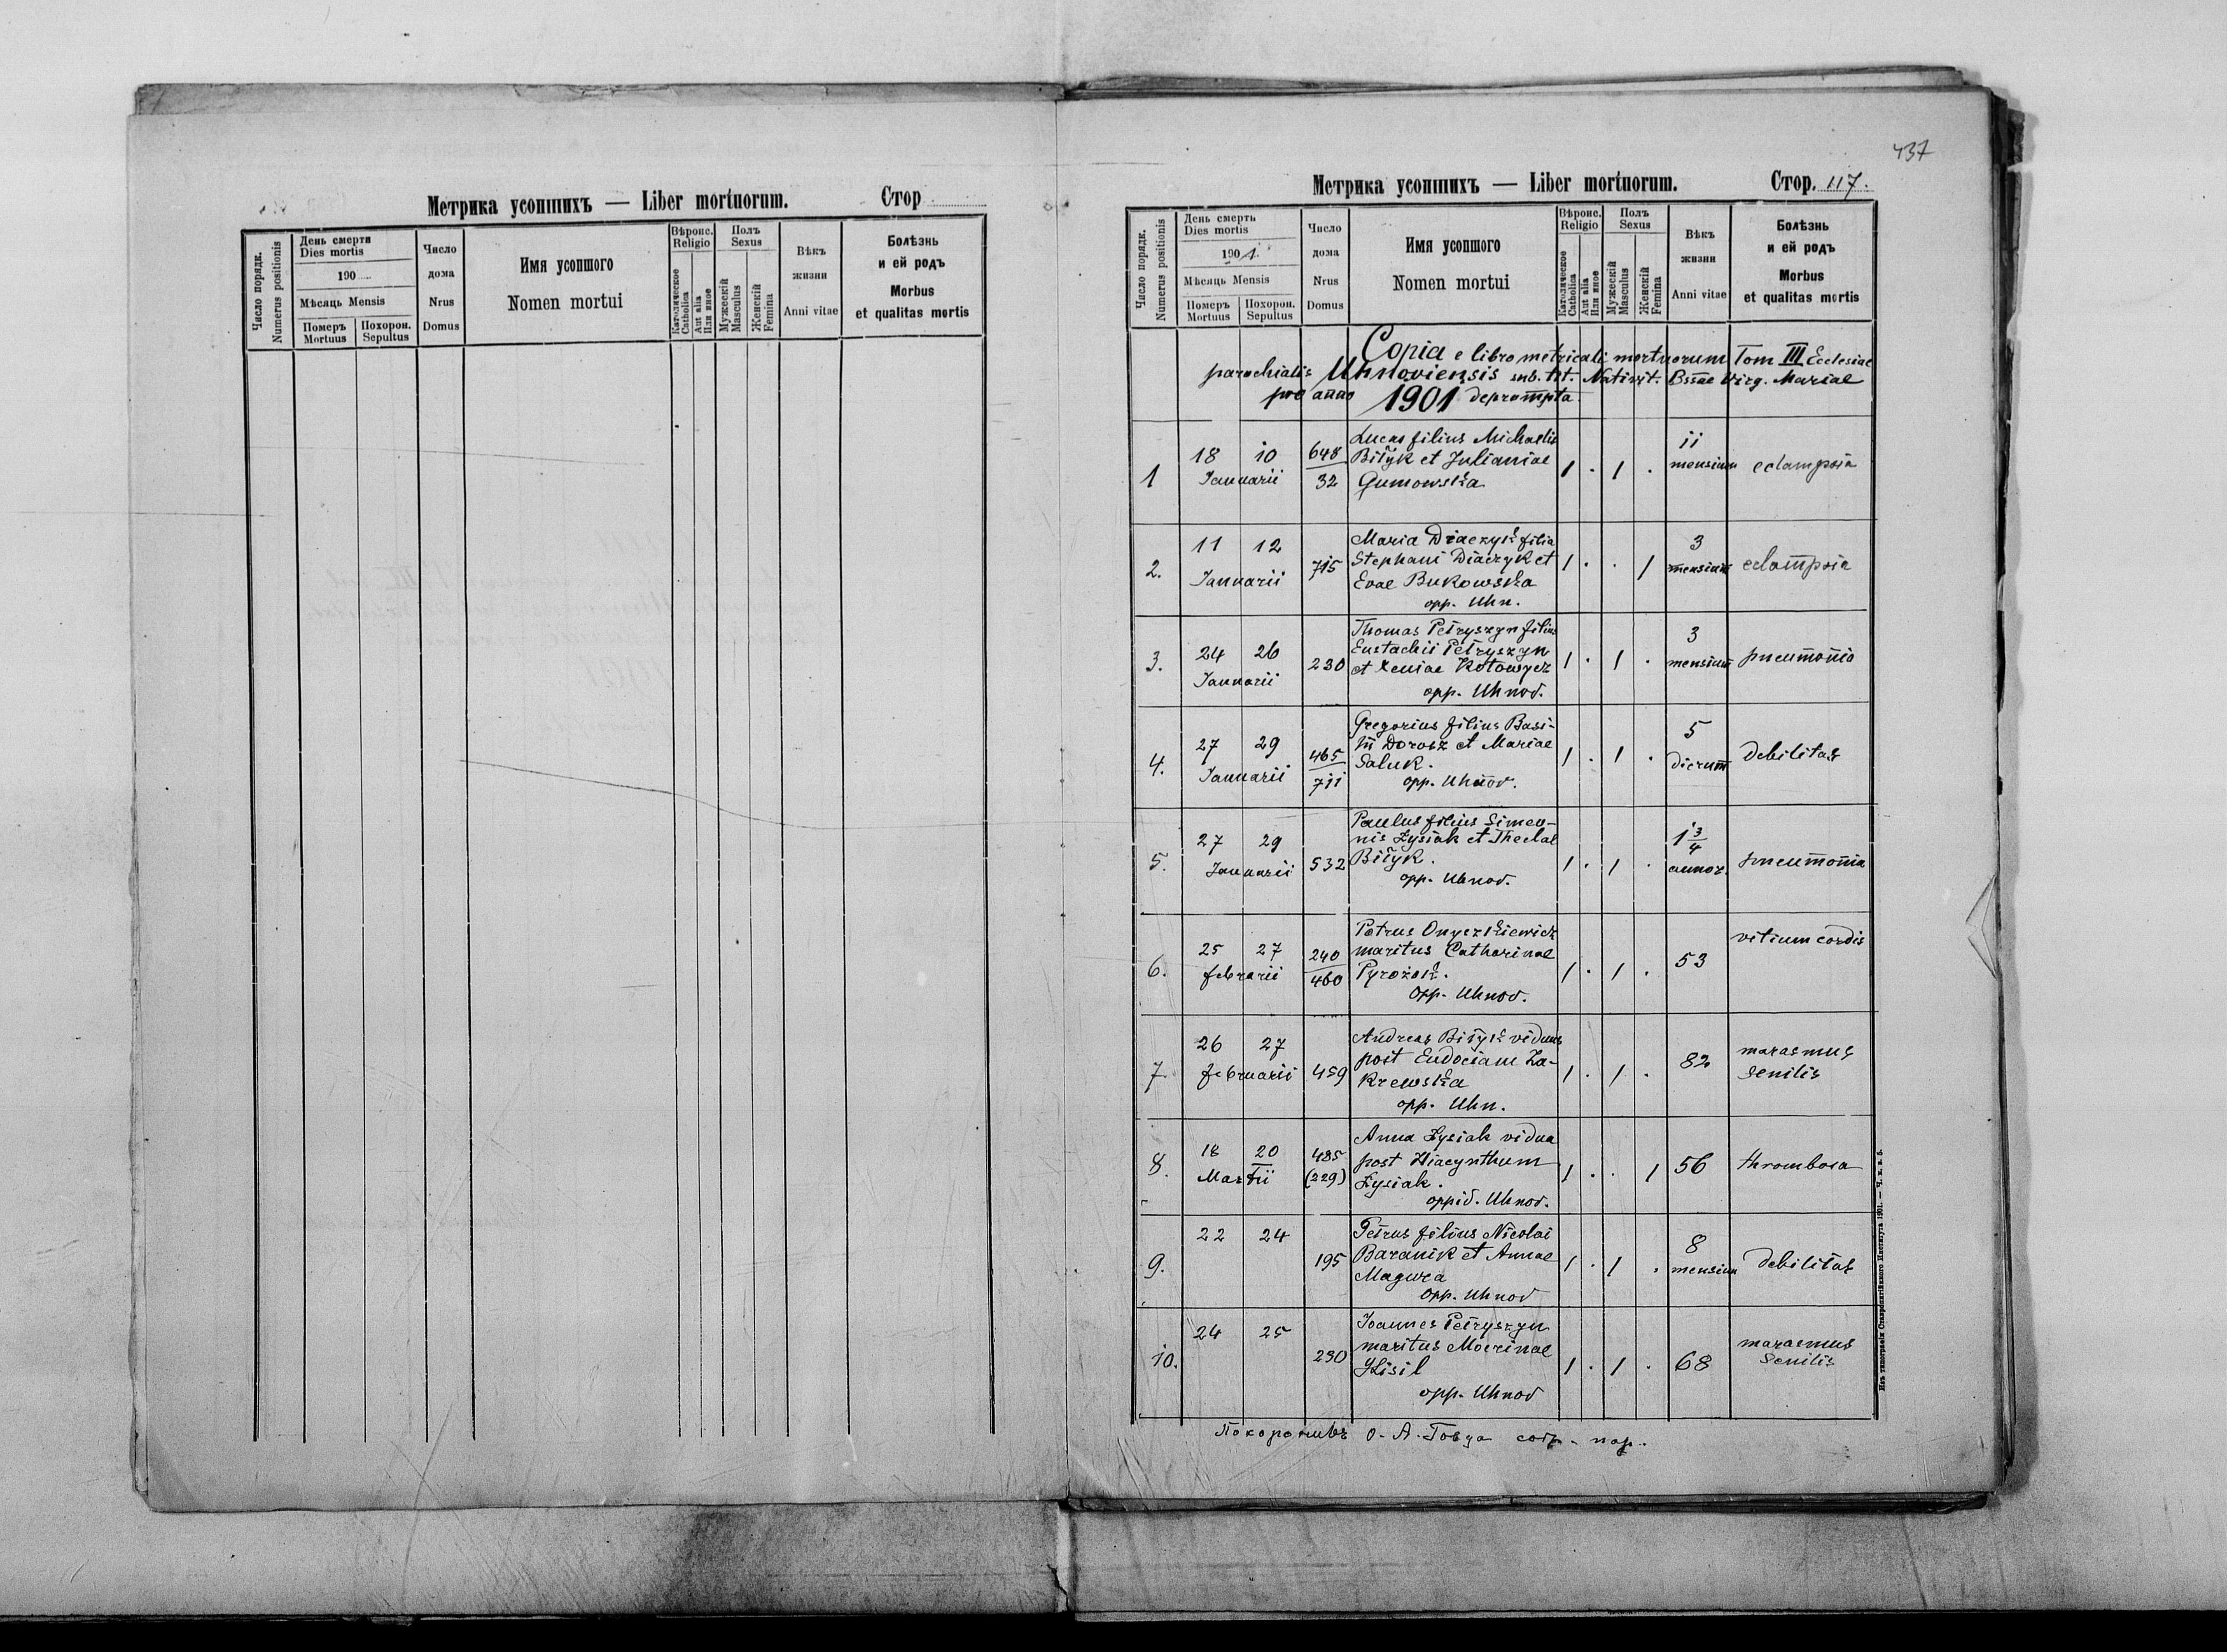 Метрика усопшихъ — Liber mortuorum.
Стор
Число порядк.
Numerus positionis
День смерти
Dies mortis
190
Мѣсяць Mensis
Померъ
Mortuus
Похорон.
Sepultus
Число
дома
Nrus
Domus
Имя усопшого
Nomen mortui
Вѣроис.
Religio
Католическое
Catholica
Aut alia
Или иное
Полъ
Sexus
Мужескій
Masculus
Женскій
Femina
Вѣкъ
жизни
Anni vitae
Болѣзнь
и ей родъ
Morbus
et qualitas mortis
437
Метрика усопшихъ — Liber mortuorum.
Стор. 117.
Число порядк.
Numerus positionis
День смерть
Dies mortis
1901.
Мѣсяць Mensis
Померъ
Mortuus
Похорон.
Sepultus
Число
дома
Nrus
Domus
Имя усопшого
Nomen mortui
Вѣроис.
Religio
Католическое
Catholica
Aut alia
Или иное
Полъ
Sexus
Мужескій
Masculus
Женскій
Femina
Вѣкъ
жизни
Anni vitae
Болѣзнь
и ей родъ
Morbus
et qualitas mortis
Copia e libro metricali mortuorum Tom III Ecclesiae
parochialis Uhnoviensis sub. tit. Nativit. Bssae Virg. Mariae
pro anno 1901 deprompta
1
18 10
Januarii
648
32
Lucas filius Michaelis
Biłyk et Julianiae
Gumowska
1 . 1 .
11
mensium
eclampsia
2.
11 12
Januarii
715
Maria Diaczyk filia
Stephani Diaczyk et
Evae Bukowska
opp. Uhn.
1 . . 1
3
mensium
eclampsia
3.
24 26
Januarii
230
Thomas Petryszyn filius
Eustachii Petryszyn
et Xeniae Kotowycz
opp. Uhnov.
1 . 1 .
3
mensium
pneumonia
4.
27 29
Januarii
465
711
Gregorius filius Basi-
lii Dorosz et Mariae
Saluk.
opp. Uhnov.
1 . 1 .
5
dierum
debilitas
5.
27 29
Januarii
532
Paulus filius Simeo-
nis Łysiak et Theclae
Biłyk.
opp. Uhnov.
1 . 1 .
1 3/4
annor.
pneumonia
6.
25 27
febrarii
240
460
Petrus Onyszkiewicz
maritus Catharinae
Pyrożok.
opp. Uhnov.
1 . 1 .
53
vitium cordis
7
26 27
februarii
459
Andreas Biłyk viduus
post Eudociam Za-
krewska
opp. Uhn.
1 . 1 .
82
marasmus
senilis
8.
18 20
Martii
485
(229)
Anna Łysiak vidua
post Hiacynthum
Łysiak.
oppid. Uhnov.
1 . . 1
56
thrombosa
9.
22 24
195
Petrus filius Nicolai
Baranik et Annae
Magura
opp. Uhnov
1 . 1 .
8
mensium
debilitas
10.
24 25
230
Joannes Petryszyn
maritus Macrinae
Kisil
opp. Uhnov
1 . 1 .
68
marasmus
senilis
Похоронивъ о. А. Говда сотр. пар.
Изъ типографіи Ставропигійского Института 1901. — Ч. к. з. 5.